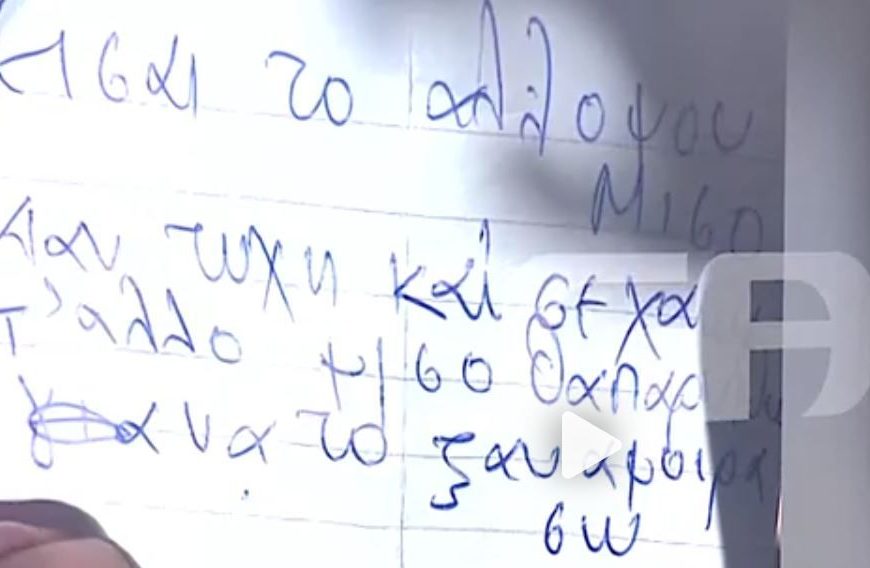 εισαι το αλλο μου
μισο
Αν τυχη και σε χα
τ' αλλο μισο θα παρω
να το ξαναμοιρα
σω